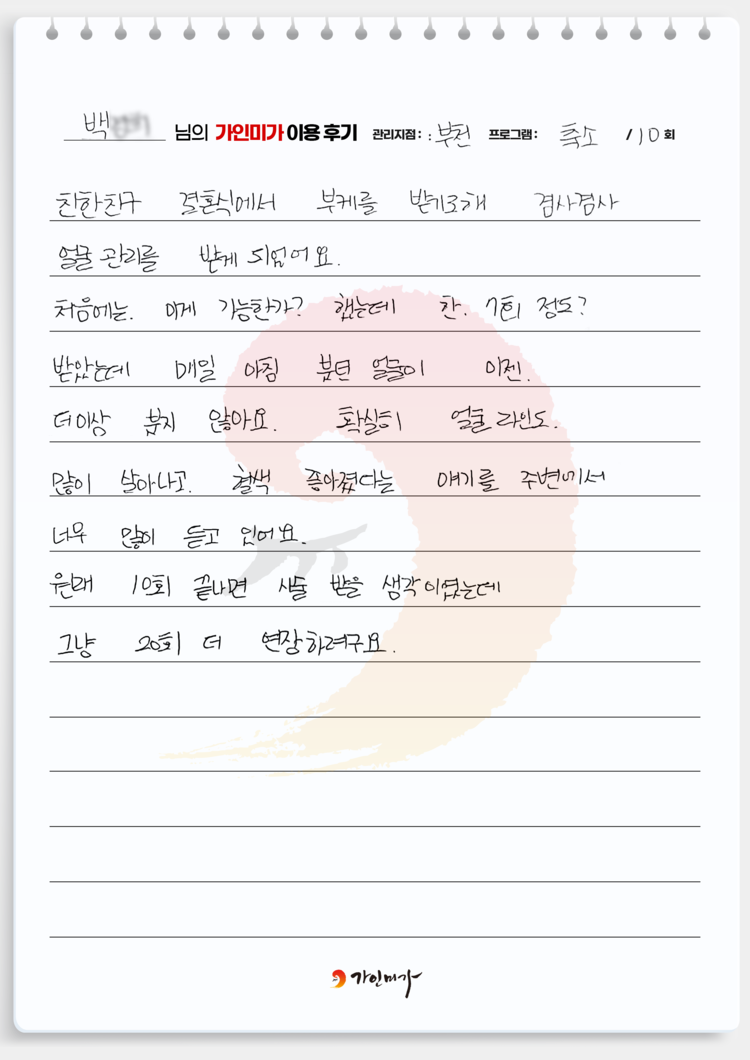 백 님의 가인미가 이용 후기 관리지점 : : 부천 프로그램 : 축소 / 10 회
친한친구 결혼식에서 부케를 받기로해 겸사겸사
얼굴 관리를 받게 되었어요.
처음에는. 이게 가능한가? 했는데 한. 7회 정도?
받았는데 매일 아침 붓던 얼굴이 이젠.
더이상 붓지 않아요. 확실히 얼굴 라인도.
많이 살아나고. 혈색 좋아졌다는 얘기를 주변에서
너무 많이 듣고 있어요.
원래 10회 끝나면 시둘 받을 생각이였는데
그냥 20회 더 연장하려구요.
가인미가